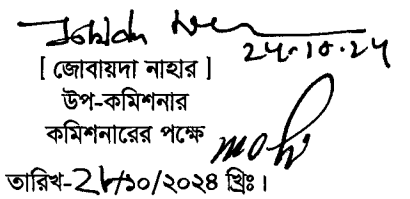 ২৮-১০-২৪
[ জোবায়দা নাহার ]
উপ-কমিশনার
কমিশনারের পক্ষে
তারিখ-২৮/১০/২০২৪ খ্রিঃ।